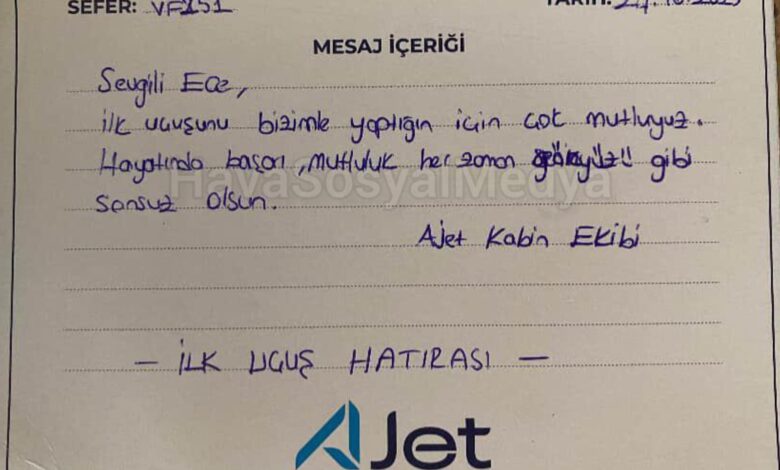 SEFER: VF151
TARİH: 24.10.2025
MESAJ İÇERİĞİ
Sevgili Ece,
ilk uçuşunu bizimle yaptığın için çok mutluyuz.
Hayatında başarı, mutluluk her zaman gökyüzü gibi
HavaSosyalMedya
sonsuz olsun.
AJet Kabin Ekibi
- İLK UÇUŞ HATIRASI -
AJet